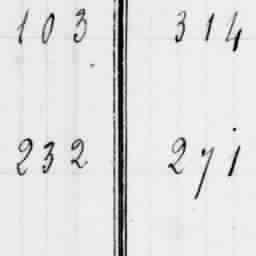 103 314
232 271